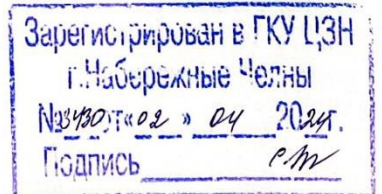 Зарегистрирован в ГКУ ЦЗН
г.Набережные Челны
№3430от «02 » 04 2024г.
Подпись